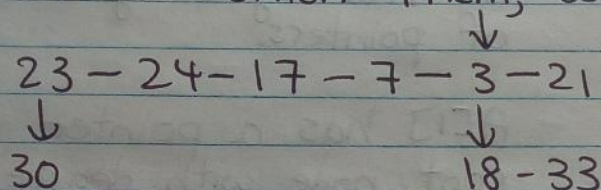 ↓
23 - 24 - 17 - 7 - 3 - 21
↓ ↓
30 18 - 33